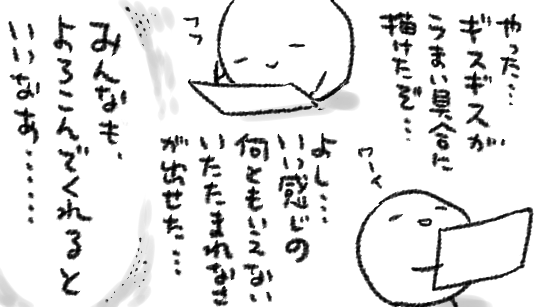 やった…
ギスギスが
うまい具合に
描けたぞ…
フフ
ワーイ
よし…
いい感じの
何ともいえない
いたたまれなさ
が出せた…
みんなも、
よろこんでくれると
いいなあ……